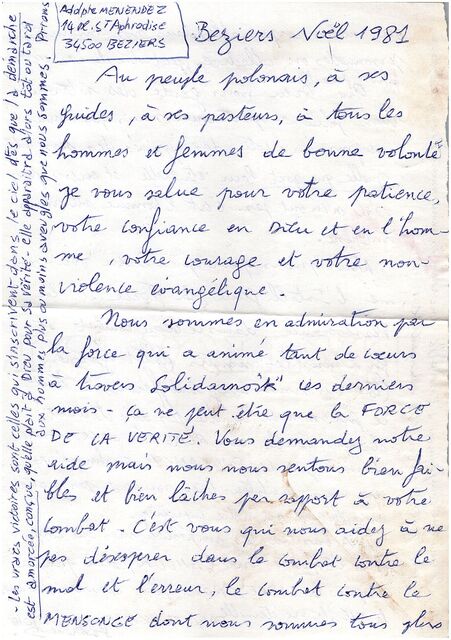 Addpte MENENDEZ
14 pl. St Aphrodise
34500 BEZIERS
Beziers Noël 1981
Au peuple polonais, à ses
guides, à ses pasteurs, à tous les
hommes et femmes de bonne volonté
je vous salue pour votre patience,
votre confiance en DIEU et en l'hom-
me, votre courage et votre non-
violence évangélique.
Nous sommes en admiration par
la force qui a animé tant de coeurs
à travers "Solidarnošk" ces derniers
mois - ça ne peut être que la FORCE
DE LA VERITÉ. Vous demandez notre
aide mais nous nous sentons bien fai-
bles et bien lâches par rapport à votre
combat. C'est vous qui nous aidez à ne
pas désespérer dans le combat contre le
mal et l'erreur, le combat contre le
MENSONGE dont nous sommes tous plus
- Les vraies victoires sont celles qui s'inscrivent dans le ciel dès que la démarche
est amorcée, conçue, qu'elle plaît à DIEU pour sa vérité - elle apparaîtra alors tôt ou tard
aux hommes plus ou moins aveugles que nous sommes. Prions